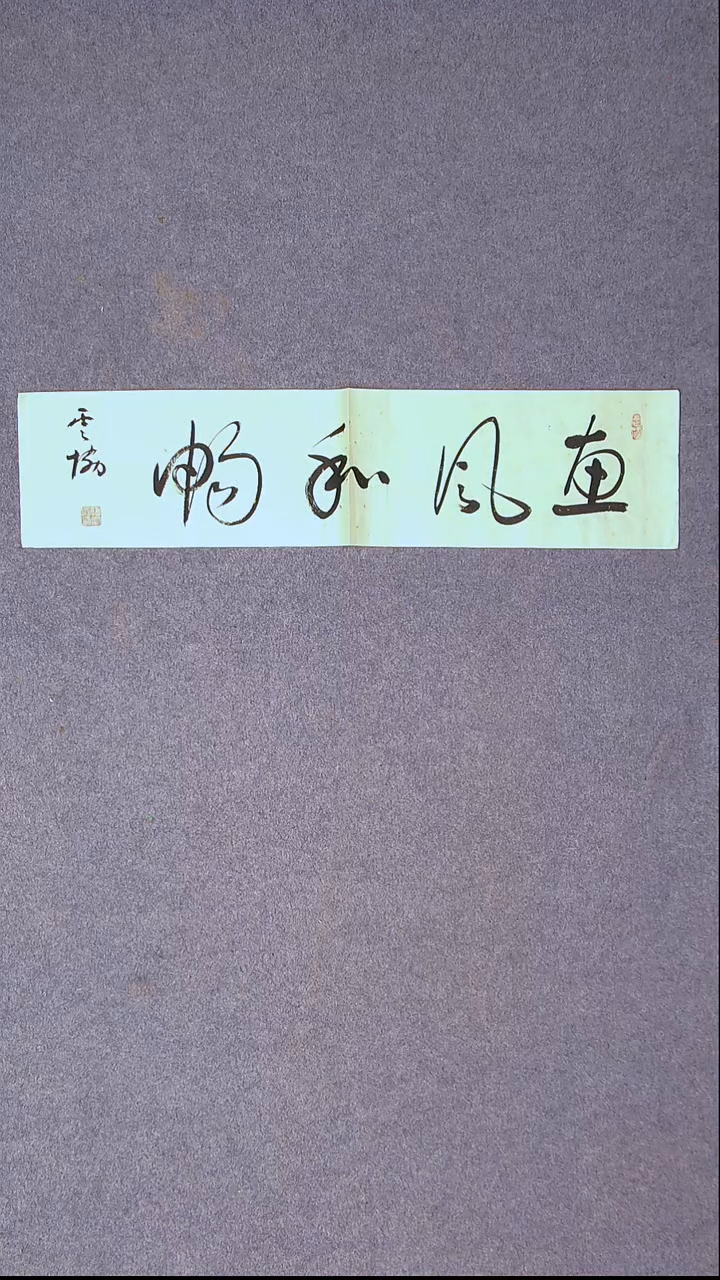 惠風和暢
雲